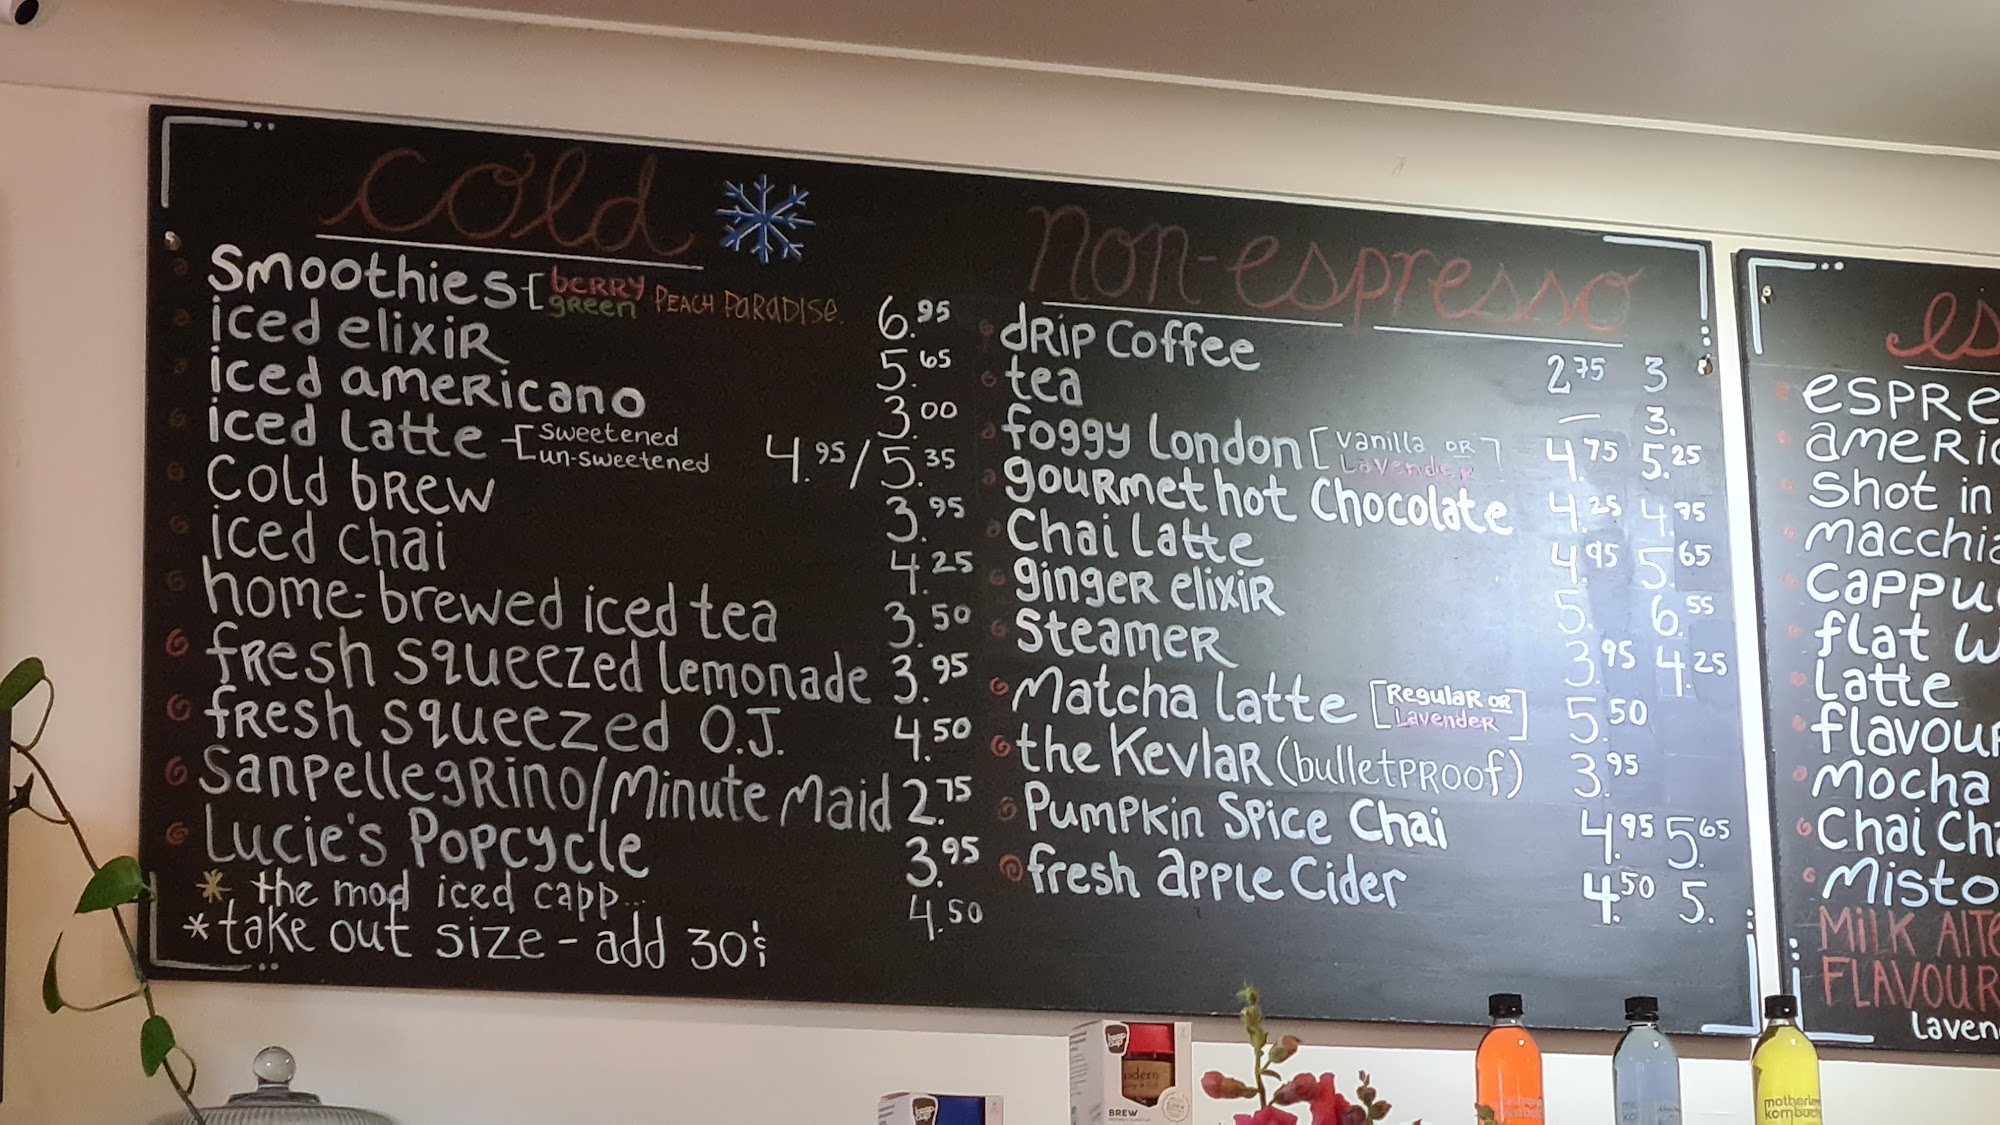 cold
smoothies [ berry green Peach Paradise. 6.95
iced elixir 5.65
iced americano 3.00
iced latte [ sweetened un-sweetened 4.95/5.35
cold brew 3.95
iced chai 4.25
home-brewed iced tea 3.50
fresh squeezed lemonade 3.95
fresh squeezed O.J. 4.50
Sanpellegrino/Minute Maid 2.75
Lucie's Popcycle 3.95
* the mod iced capp... 4.50
*take out size - add 30¢
non-espresso
drip coffee 2.75 3
tea — 3.
foggy london [vanilla or lavender] 4.75 5.25
gourmet hot chocolate 4.25 4.75
Chai Latte 4.95 5.65
ginger elixir 5. 6.55
Steamer 3.95 4.25
Matcha latte [Regular or Lavender] 5.50
the Kevlar (bulletproof) 3.95
Pumpkin Spice Chai 4.95 5.65
fresh apple Cider 4.50 5.
es
espre
americ
Shot in
macchia
Cappu
flat w
Latte
flavour
Mocha
Chai Cha
Misto
Milk Alte
Flavour
laven
keep cup
odern
BREW
motherl
kombuc